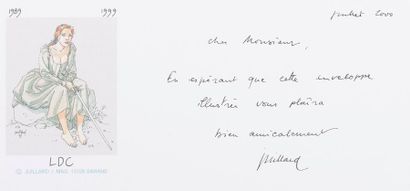 1989 1999
LDC
juillet 2000
cher Monsieur,
En espérant que cette enveloppe
illustrée vous plaira
bien amicalement
Juillard